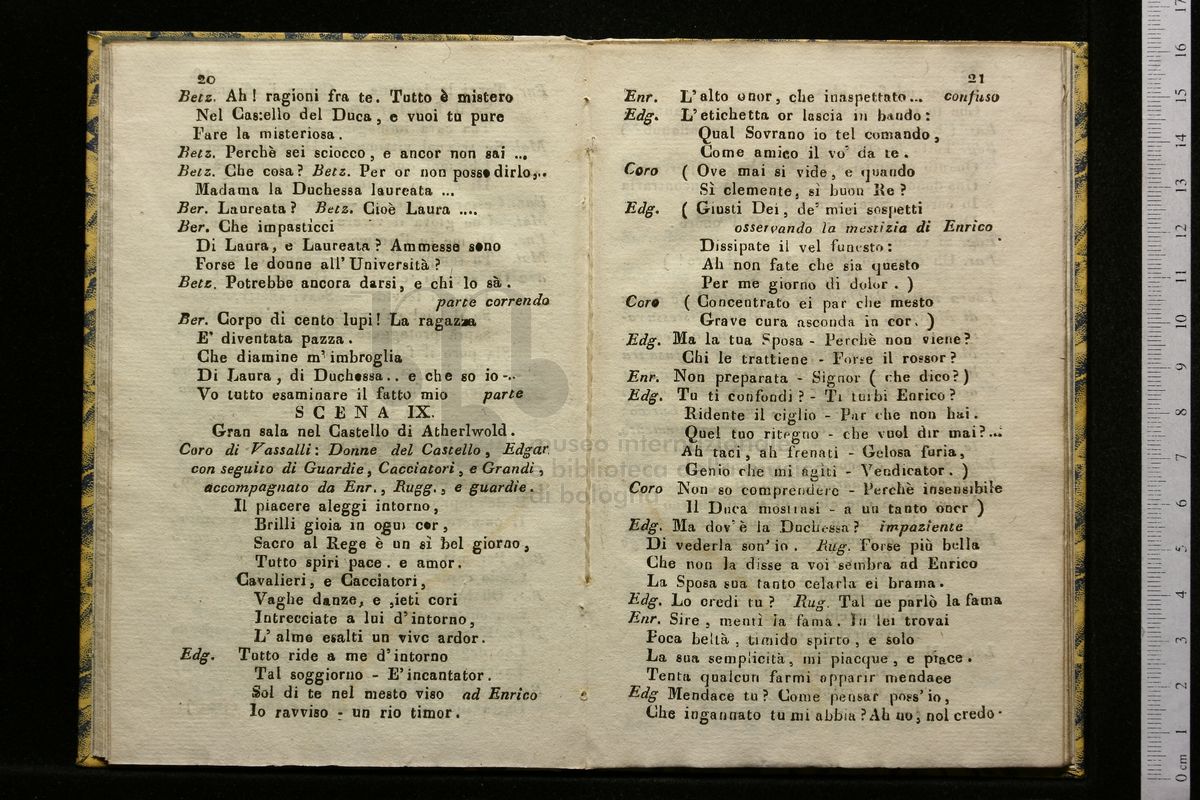 20
Betz. Ah! ragioni fra te. Tutto è mistero
Nel Castello del Duca, e vuoi tu pure
Fare la misteriosa.
Betz. Perchè sei sciocco, e ancor non sai ...
Betz. Che cosa? Betz. Per or non posso dirlo,..
Madama la Duchessa laureata ...
Ber. Laureata? Betz. Cioè Laura ....
Ber. Che impasticci
Di Laura, e Laureata? Ammesse sono
Forse le donne all' Università?
Betz. Potrebbe ancora darsi, e chi lo sà.
parte correndo
Ber. Corpo di cento lupi! La ragazza
E' diventata pazza.
Che diamine m' imbroglia
Di Laura, di Duchessa.. e che so io -..
Vo tutto esaminare il fatto mio parte
SCENA IX.
Gran sala nel Castello di Atherlwold.
Coro di Vassalli: Donne del Castello, Edgar
con seguito di Guardie, Cacciatori, e Grandi,
accompagnato da Enr., Rugg., e guardie.
Il piacere aleggi intorno,
Brilli gioia in ogni cor,
Sacro al Rege è un sì bel giorno,
Tutto spiri pace. e amor.
Cavalieri, e Cacciatori,
Vaghe danze, e ,ieti cori
Intrecciate a lui d' intorno,
L' alme esalti un vivo ardor.
Edg. Tutto ride a me d' intorno
Tal soggiorno - E' incantator.
Sol di te nel mesto viso ad Enrico
Io ravviso - un rio timor.
21
Enr. L' alto onor, che inaspettato... confuso
Edg. L' etichetta or lascia in bando:
Qual Sovrano io tel comando,
Come amico il vo' da te.
Coro ( Ove mai si vide, e quando
Sì clemente, sì buon Re?
Edg. ( Giusti Dei, de' miei sospetti
osservando la mestizia di Enrico
Dissipate il vel funesto:
Ah non fate che sia questo
Per me giorno di dolor. )
Coro ( Concentrato ei par che mesto
Grave cura asconda in cor. )
Edg. Ma la tua Sposa - Perchè non viene?
Chi le trattiene - Forse il rossor?
Enr. Non preparata - Signor ( che dico?)
Edg. Tu ti confondi? - Ti turbi Enrico?
Ridente il ciglio - Par che non hai.
Quel tuo ritegno - che vuol dir mai?...
Ah taci, ah frenati - Gelosa furia,
Genio che mi agiti - Vendicator. )
Coro Non so comprendere - Perchè insensibile
Il Duca mostrasi - a un tanto onor )
Edg. Ma dov' è la Duchessa? impaziente
Di vederla son' io. Rug. Forse più bella
Che non la disse a voi sembra ad Enrico
La Sposa sua tanto celarla ei brama.
Edg. Lo credi tu? Rug. Tal ne parlò la fama
Enr. Sire, mentì la fama. In lei trovai
Poca beltà, timido spirto, e solo
La sua semplicità, mi piacque, e piace.
Tenta qualcun farmi apparir mendace
Edg Mendace tu? Come pensar poss' io,
Che ingannato tu mi abbia? Ah no, nol credo
museo internazionale
biblioteca
di bologna